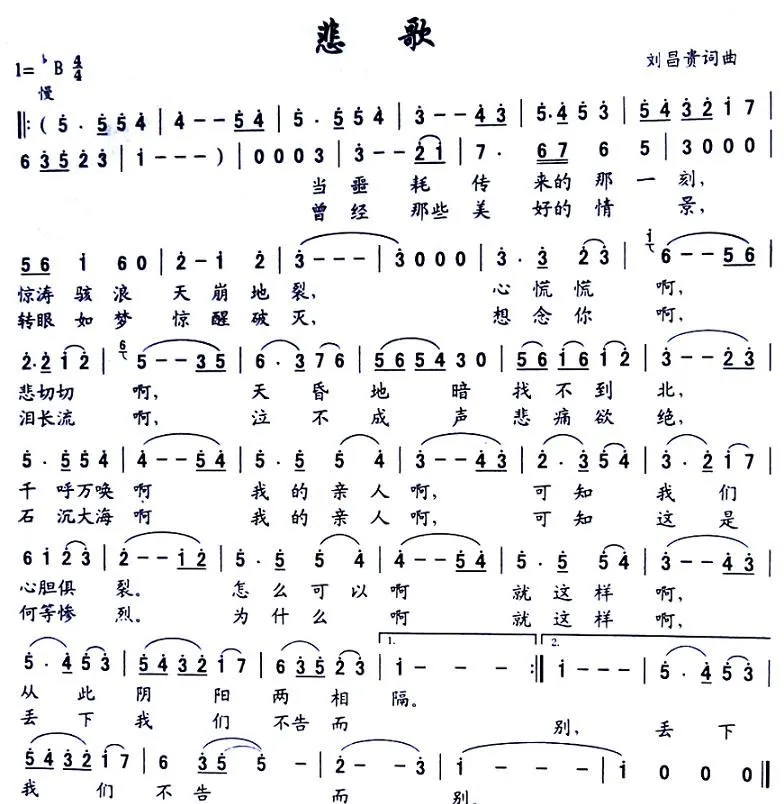 悲歌
1=♭B 4/4
刘昌贵词曲
慢
‖:( 5̇ . 5̇5̇4̇ | 4̇ - - 5̇4̇ | 5̇ . 5̇5̇4̇ | 3̇ - - 4̇3̇ | 5̇.4̇5̇3̇ | 5̇4̇3̇2̇ 1̇ 7
6 3̇5̇2̇3̇ | 1̇ - - - ) | 0 0 0 3̇ | 3̇ - - 2̇1̇ | 7 . 67 6 5 | 3 0 0 0 |
当噩耗传来的那一刻,
曾经那些美好的情景,
56 1̇ 60 | 2̇ - 1̇ 2̇ | 3̇ - - - | 3̇ 0 0 0 | 3̇ . 3̇ 2̇3̇ | 1̇ 6 - - 56 |
惊涛骇浪天崩地裂, 心慌慌啊,
转眼如梦惊醒破灭, 想念你啊,
2̇.2̇1̇2̇ | 6 5 - - 35 | 6 . 3̇76 | 565430 | 561̇61̇2̇ | 3̇ - - 2̇3̇ |
悲切切啊, 天昏地暗找不到北,
泪长流啊, 泣不成声悲痛欲绝,
5̇ . 5̇5̇4̇ | 4̇ - - 5̇4̇ | 5̇ . 5̇ 5̇ 4̇ | 3̇ - - 4̇3̇ | 2̇ . 3̇5̇4̇ | 3̇ . 2̇1̇7 |
千呼万唤啊 我的亲人啊, 可知我们
石沉大海啊 我的亲人啊, 可知这是
6 1̇ 2̇3̇ | 2̇ - - 1̇2̇ | 5̇ . 5̇ 5̇ 4̇ | 4̇ - - 5̇4̇ | 5̇ . 5̇ 5̇4̇ | 3̇ - - 4̇3̇ |
心胆俱裂。 怎么可以啊 就这样啊,
何等惨烈。 为什么啊 就这样啊,
1. 2.
5̇ . 4̇5̇3̇ | 5̇4̇3̇2̇1̇7 | 63̇5̇2̇3̇ | 1̇ - - - :‖ 1̇ - - - | 5̇ . 4̇5̇3̇ |
从此阴阳两相隔。
丢下我们不告而别, 丢下
5̇4̇3̇2̇1̇7 | 6 3̇5̇ 5̇ - | 2̇ - - 3̇ | 1̇ - - - | 1̇ 0 0 0 ‖
我们不告而别。